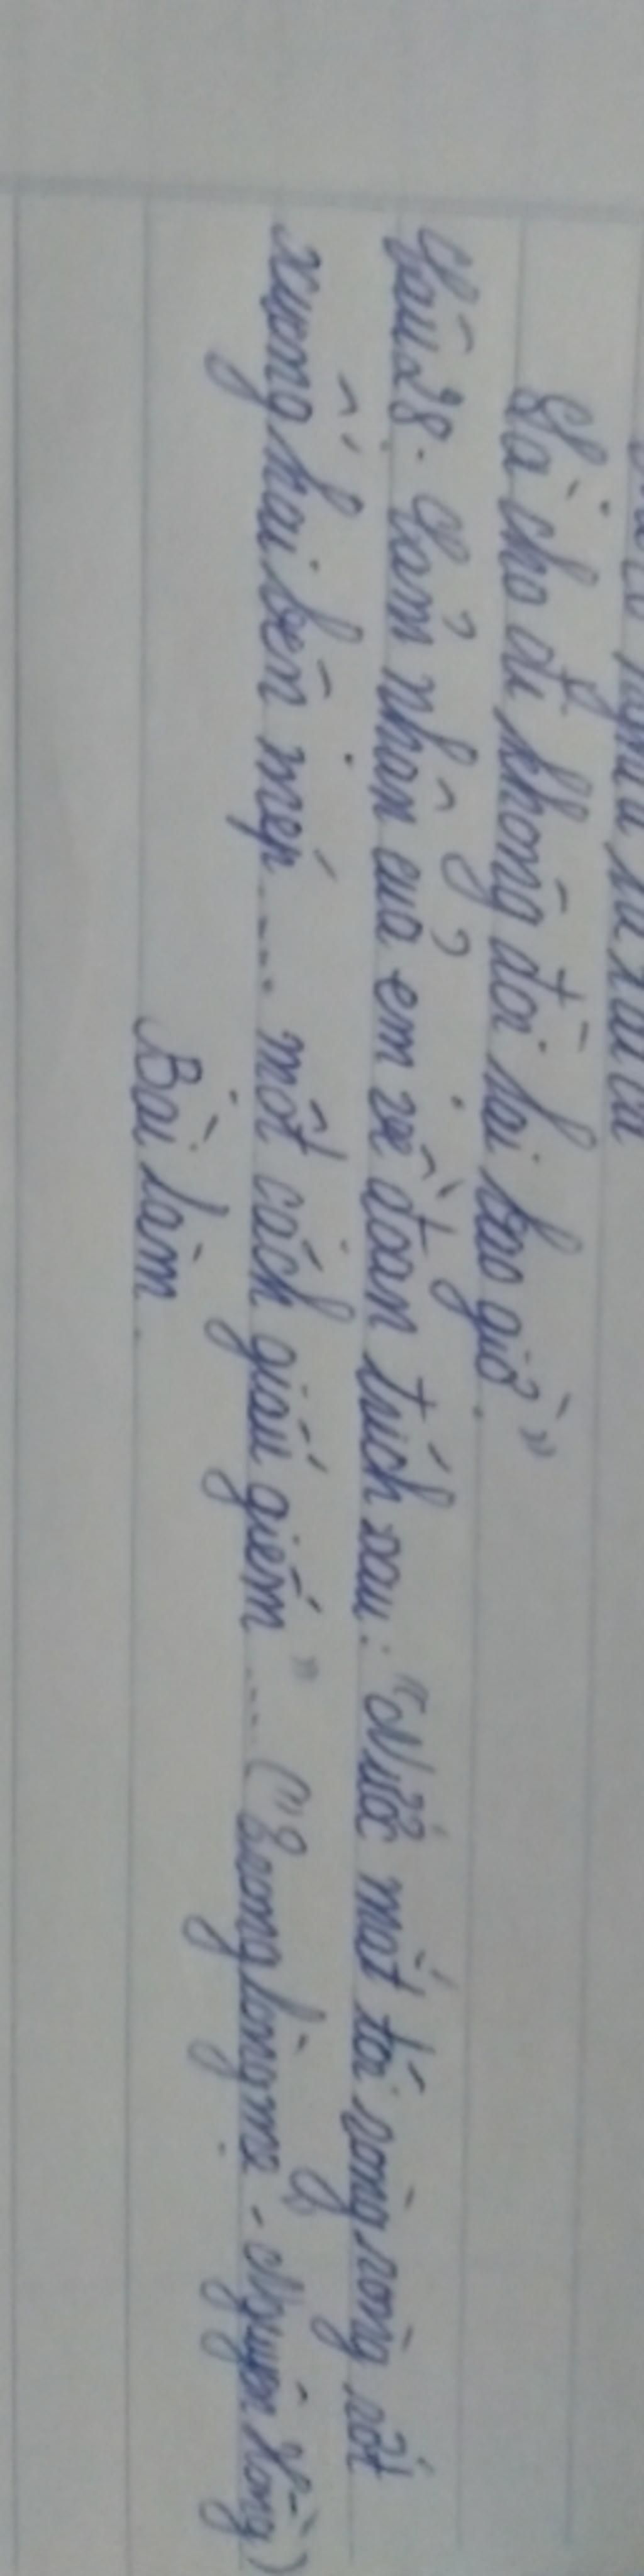 Là cho đi không đòi lại bao giờ"
Câu 28: Cảm nhận của em về đoạn trích sau: "Nước mắt tôi ròng ròng rớt
xuống hai bên mép .... một cách giấu giếm" .... ("Trong lòng mẹ - Nguyên Hồng)
Bài làm.